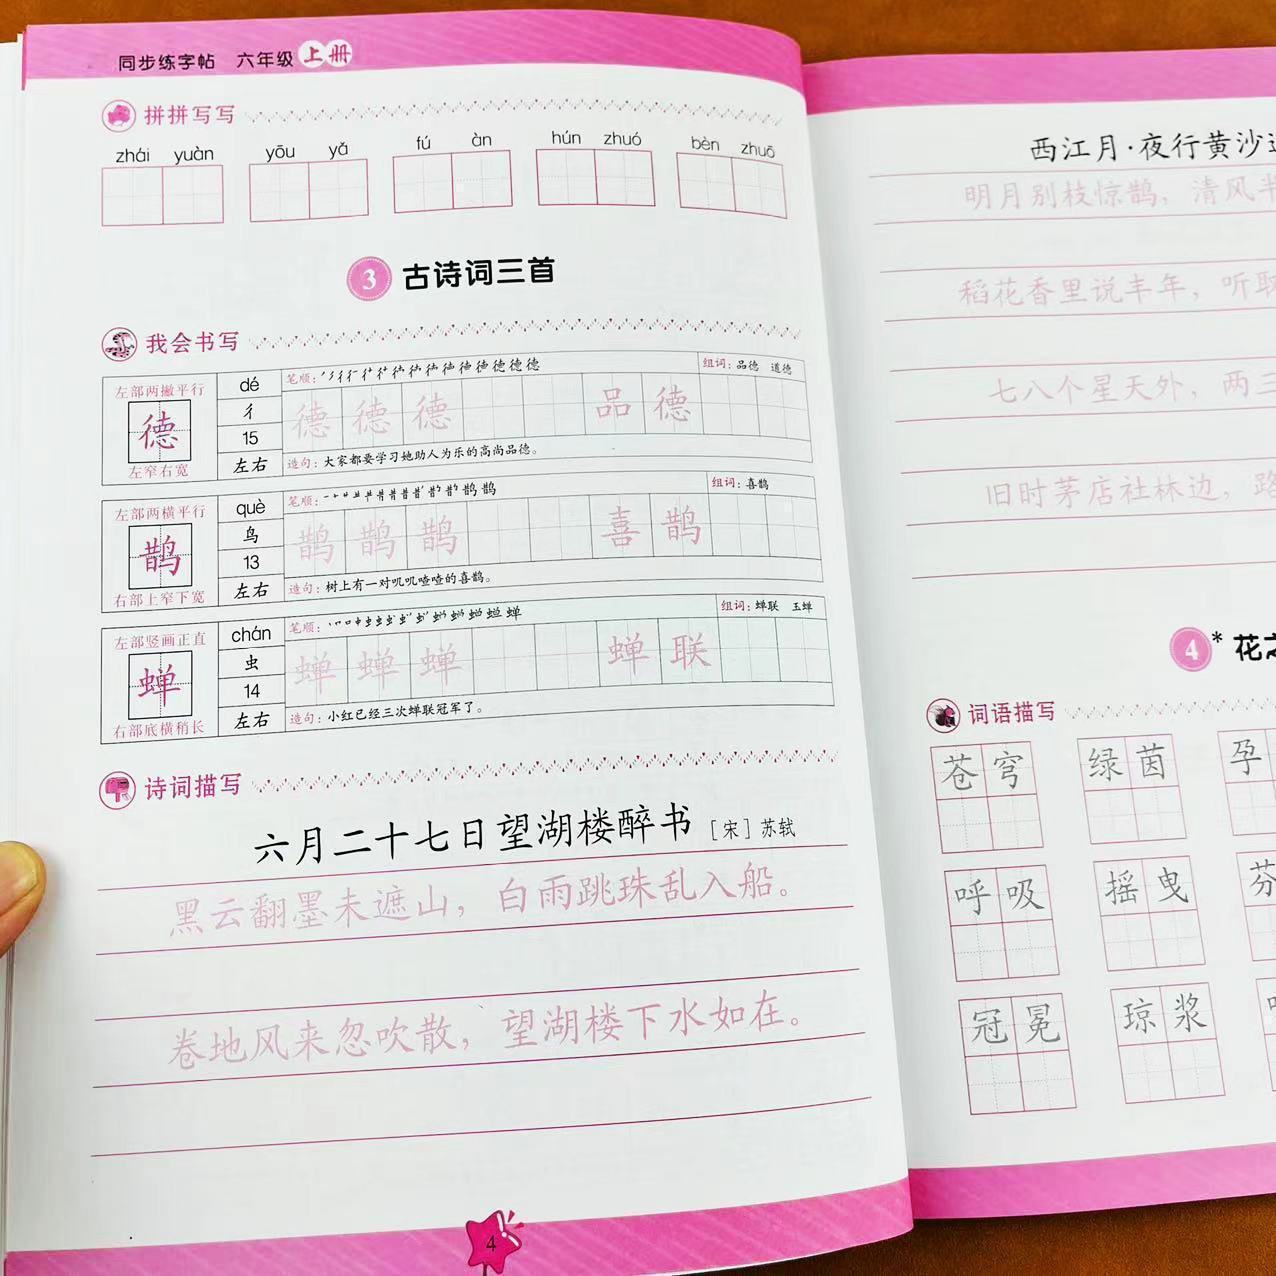 同步练字帖 六年级 上册
拼拼写写
zhái yuàn yōu yǎ fú àn hún zhuó bèn zhuō
3 古诗词三首
我会书写
左部两撇平行
德
左窄右宽
dé
彳
15
左右
笔顺：
组词：品德 道德
德 德 德 品 德
造句：大家都要学习她助人为乐的高尚品德。
左部两横平行
鹊
右部上窄下宽
què
鸟
13
左右
笔顺：
组词：喜鹊
鹊 鹊 鹊 喜 鹊
造句：树上有一对叽叽喳喳的喜鹊。
左部竖画正直
蝉
右部底横稍长
chán
虫
14
左右
笔顺：
组词：蝉联 玉蝉
蝉 蝉 蝉 蝉 联
造句：小红已经三次蝉联冠军了。
诗词描写
六月二十七日望湖楼醉书 [宋]苏轼
黑云翻墨未遮山，白雨跳珠乱入船。
卷地风来忽吹散，望湖楼下水如在。
4
西江月·夜行黄沙
明月别枝惊鹊，清风半
稻花香里说丰年，听取
七八个星天外，两三
旧时茅店社林边，路
4 * 花之
词语描写
苍穹 绿茵 孕
呼吸 摇曳 芬
冠冕 琼浆